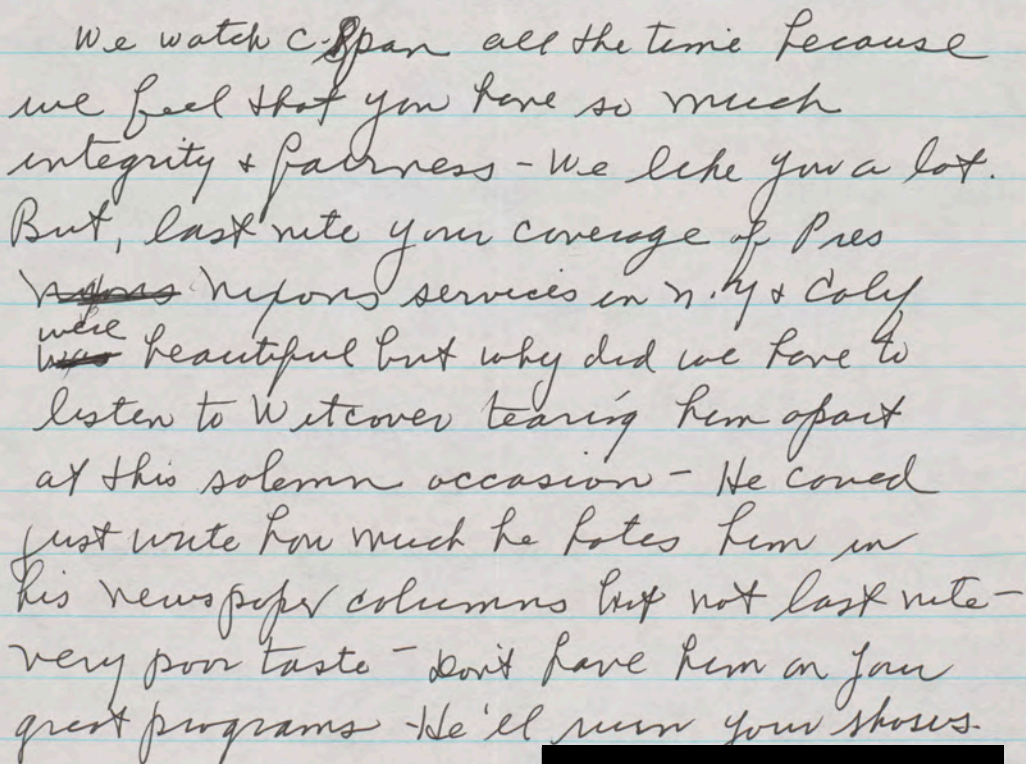 We watch C-Span all the time because
we feel that you have so much
integrity & fairness - We like you a lot.
But, last nite your coverage of Pres
Nixons services in N.Y & Calif
were
beautiful but why did we have to
listen to Witcover tearing him apart
at this solemn occasion - He coued
just write how much he hates him in
his newspaper columns but not last nite -
very poor taste - Don't have him on your
great programs - He'll ruin your shows.